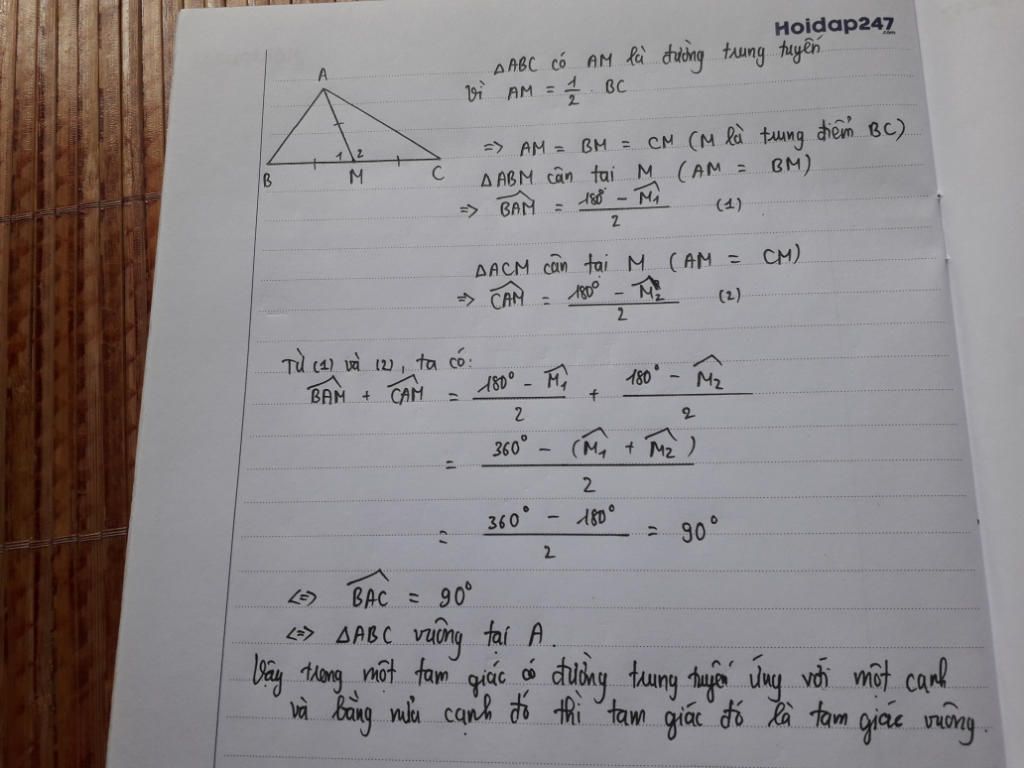 Hoidap247.com
△ABC có AM là đường trung tuyến
Vì AM = 1/2 . BC
A
1 2
B M C
=> AM = BM = CM (M là trung điểm BC)
△ABM cân tại M (AM = BM)
=> \widehat{BAM} = (180° - \widehat{M₁})/2 (1)
△ACM cân tại M (AM = CM)
=> \widehat{CAM} = (180° - \widehat{M₂})/2 (2)
Từ (1) và (2), ta có:
\widehat{BAM} + \widehat{CAM} = (180° - \widehat{M₁})/2 + (180° - \widehat{M₂})/2
= (360° - (\widehat{M₁} + \widehat{M₂}))/2
= (360° - 180°)/2 = 90°
<=> \widehat{BAC} = 90°
<=> △ABC vuông tại A.
Vậy trong một tam giác có đường trung tuyến ứng với một cạnh
và bằng nửa cạnh đó thì tam giác đó là tam giác vuông.